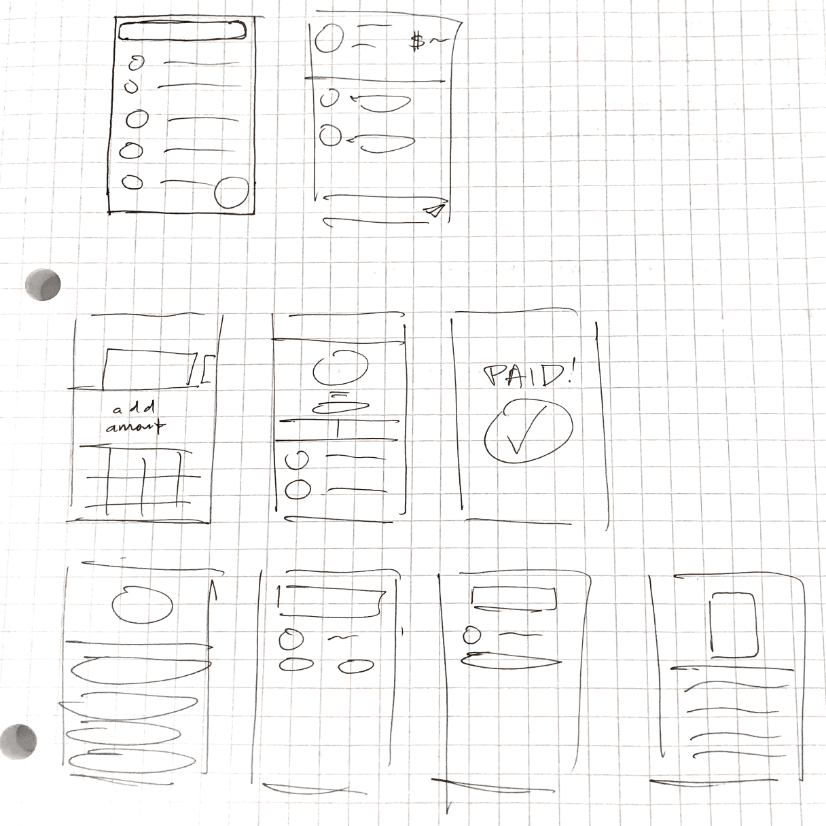 $~
add
amount
PAID!